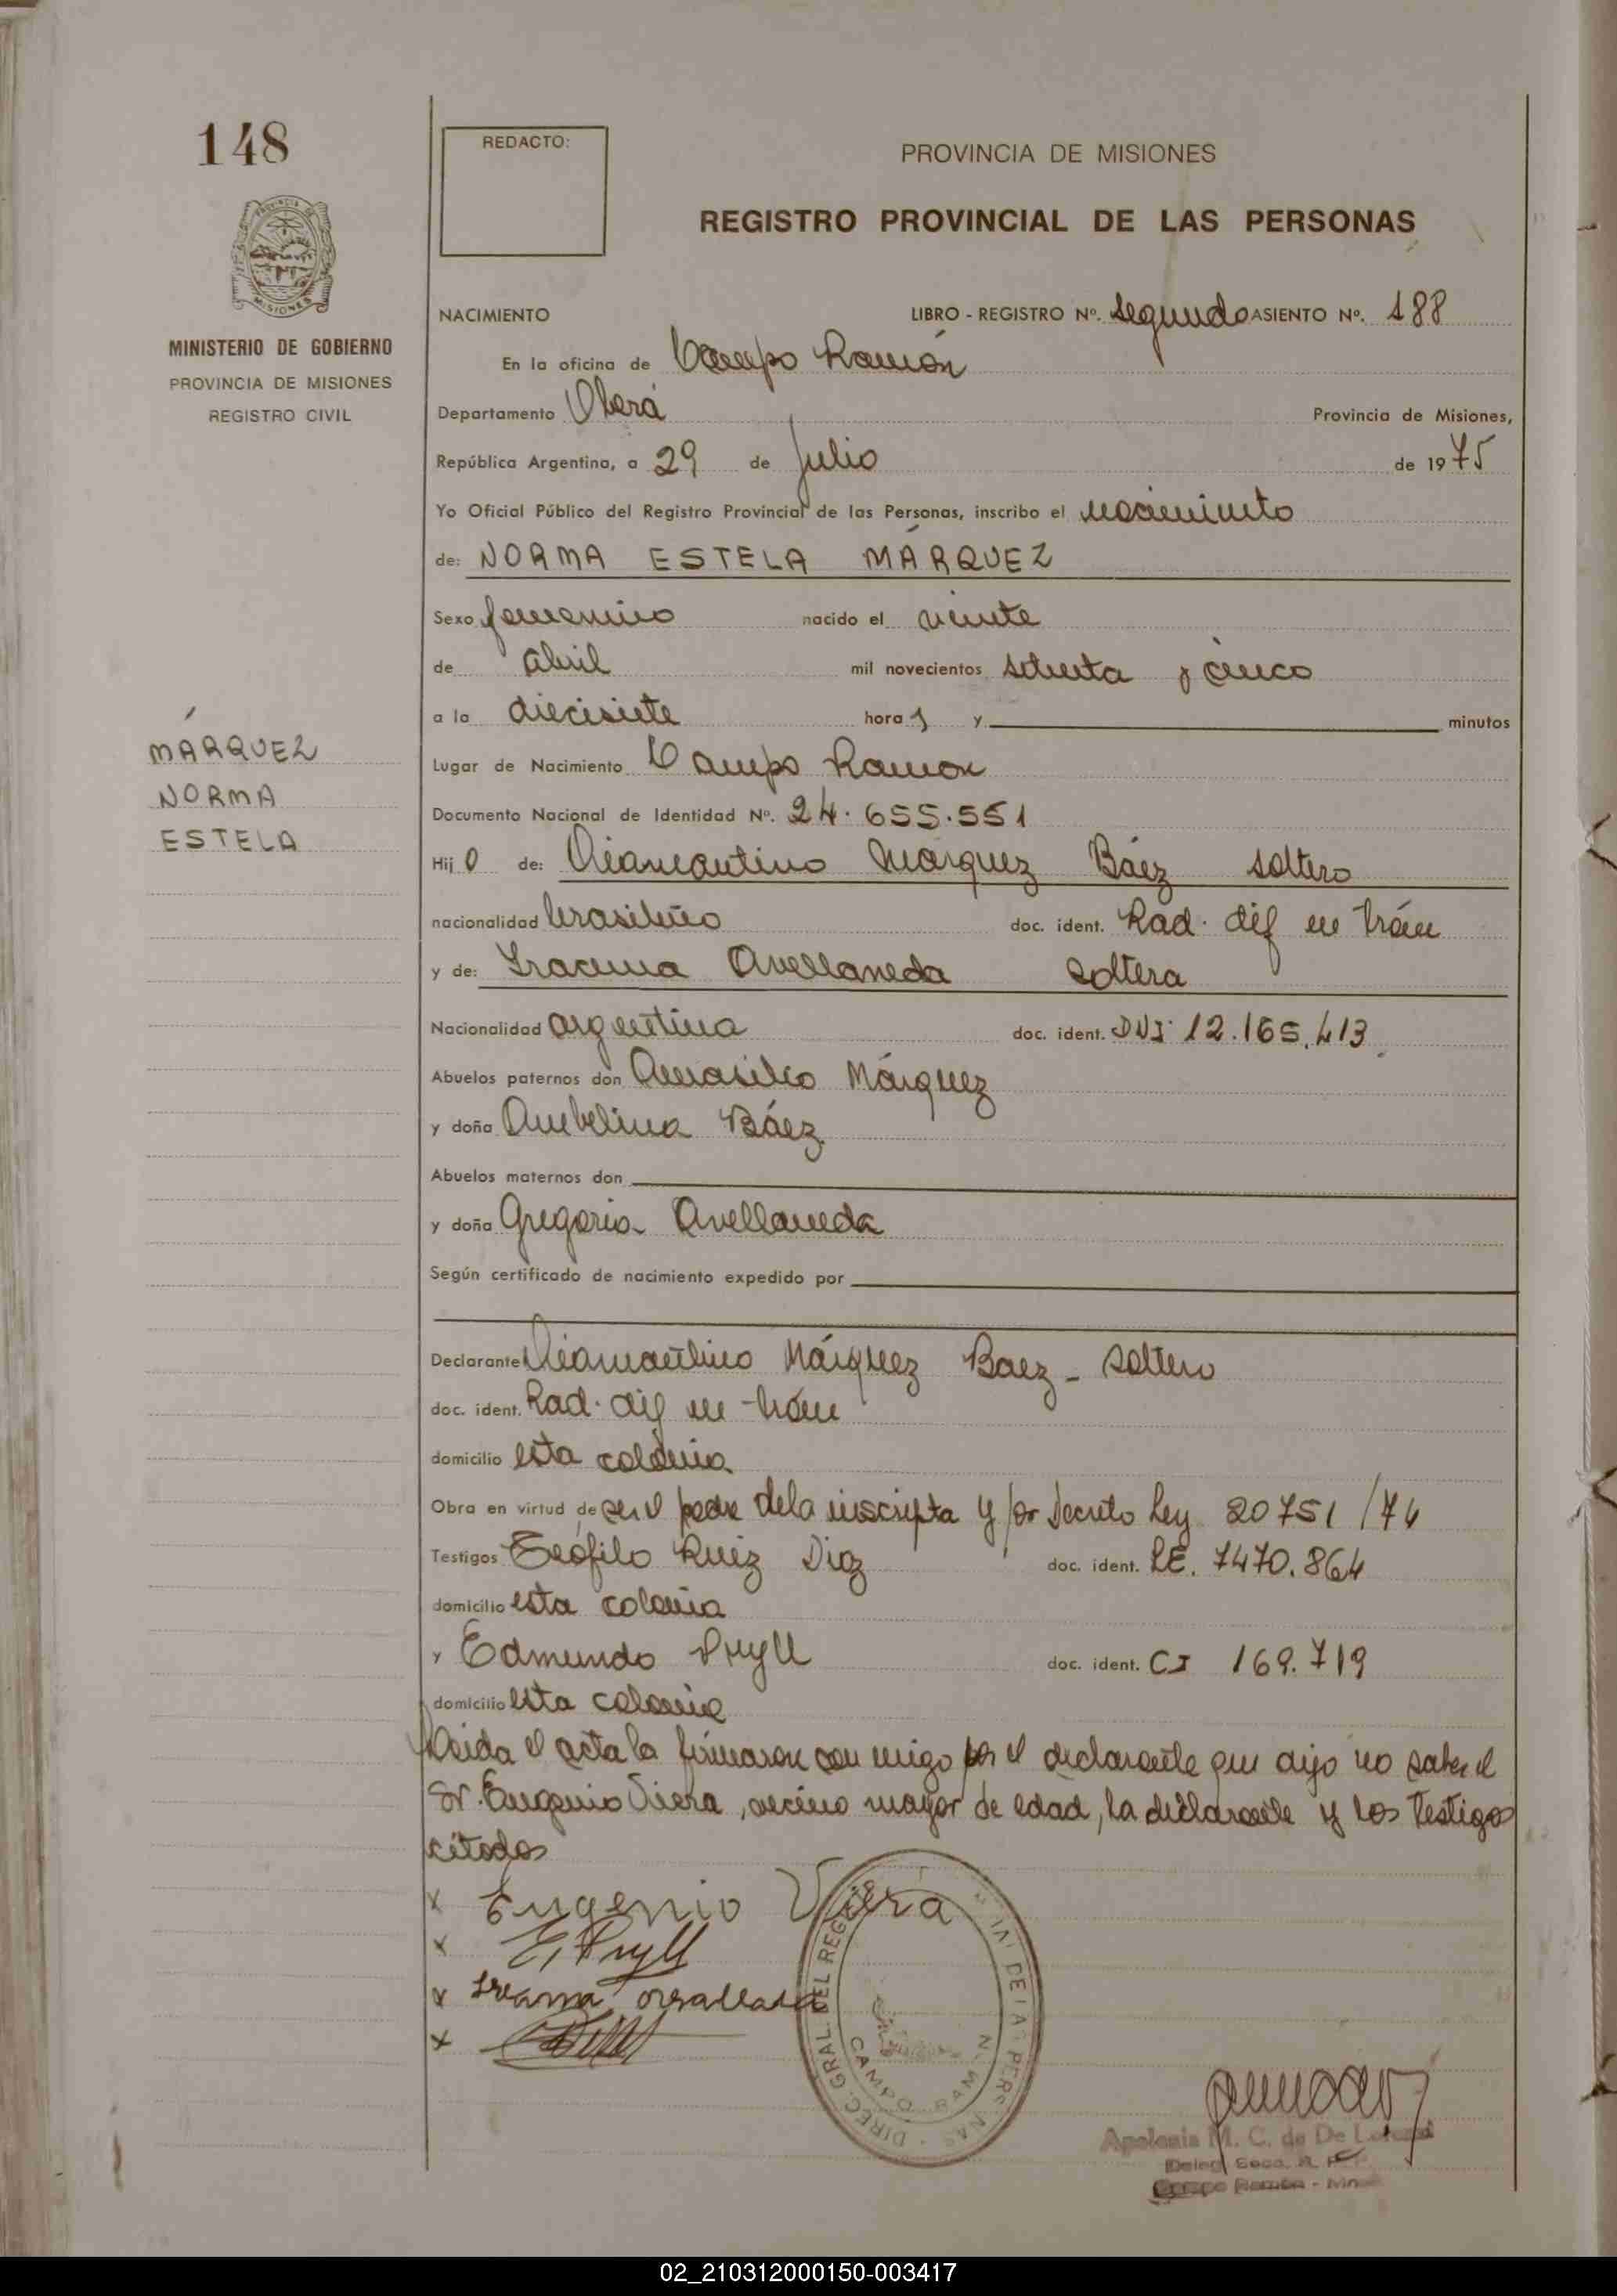 148
REDACTO:
PROVINCIA DE MISIONES
REGISTRO PROVINCIAL DE LAS PERSONAS
MISIONES
MINISTERIO DE GOBIERNO
PROVINCIA DE MISIONES
REGISTRO CIVIL
NACIMIENTO LIBRO - REGISTRO Nº. Segundo ASIENTO Nº. 188
En la oficina de Campo Ramón
Departamento Oberá Provincia de Misiones,
República Argentina, a 29 de Julio de 1975
Yo Oficial Público del Registro Provincial de las Personas, inscribo el nacimiento
de: NORMA ESTELA MÁRQUEZ
Sexo femenino nacido el veinte
de abril mil novecientos setenta y cinco
a la diecisiete hora s y minutos
MÁRQUEZ
NORMA
ESTELA
Lugar de Nacimiento Campo Ramon
Documento Nacional de Identidad Nº. 24.655.551
Hij o de: Diamantino Márquez Báez soltero
nacionalidad brasileño doc. ident. Rad. dif en trám
y de: Iracema Avellaneda soltera
Nacionalidad argentina doc. ident. DNI 12.165.413
Abuelos paternos don Amasilio Márquez
y doña Ambelina Báez
Abuelos maternos don
y doña Gregoria Avellaneda
Según certificado de nacimiento expedido por
Declarante Diamantino Márquez Baez - soltero
doc. ident. Rad. dif en trám
domicilio esta colonia
Obra en virtud de ser el padre de la inscripta y por Decreto Ley 20751/74
Testigos Teófilo Ruiz Diaz doc. ident. LE. 7470.864
domicilio esta colonia
y Edmundo Pryll doc. ident. CI 169.719
domicilio esta colonia
Leida el acta la firmaron con migo por el declarante que dijo no saber el
Sr. Eugenio Viera, vecino mayor de edad, la declarante y los testigos
citados
x Eugenio Viera
x E. Pryll
x
x
DIREC. GRAL. DEL REG. DE LAS PERSONAS
CAMPO RAMON
Apolonia M. C. de De
Campo Ramón
02_210312000150-003417